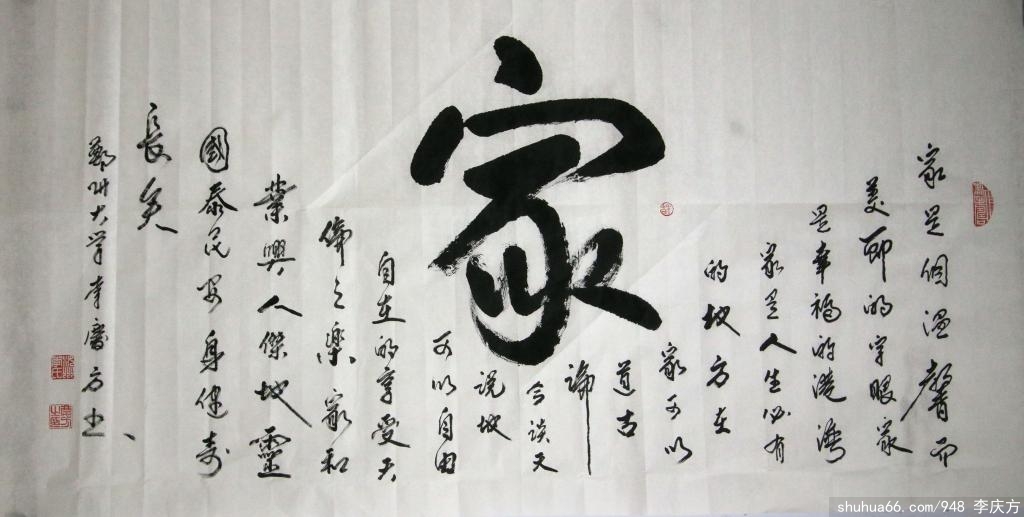 家是個温馨而
美丽的字眼家
是幸福的港灣
家是人生必有
的地方在
家可以
道古
論
今谈天
说地
可以自由
自在的享受天
倫之樂家和
業興人傑地靈
國泰民安身健壽
長
鄭州大学李慶方书
家
shuhua66.com/948 李庆方